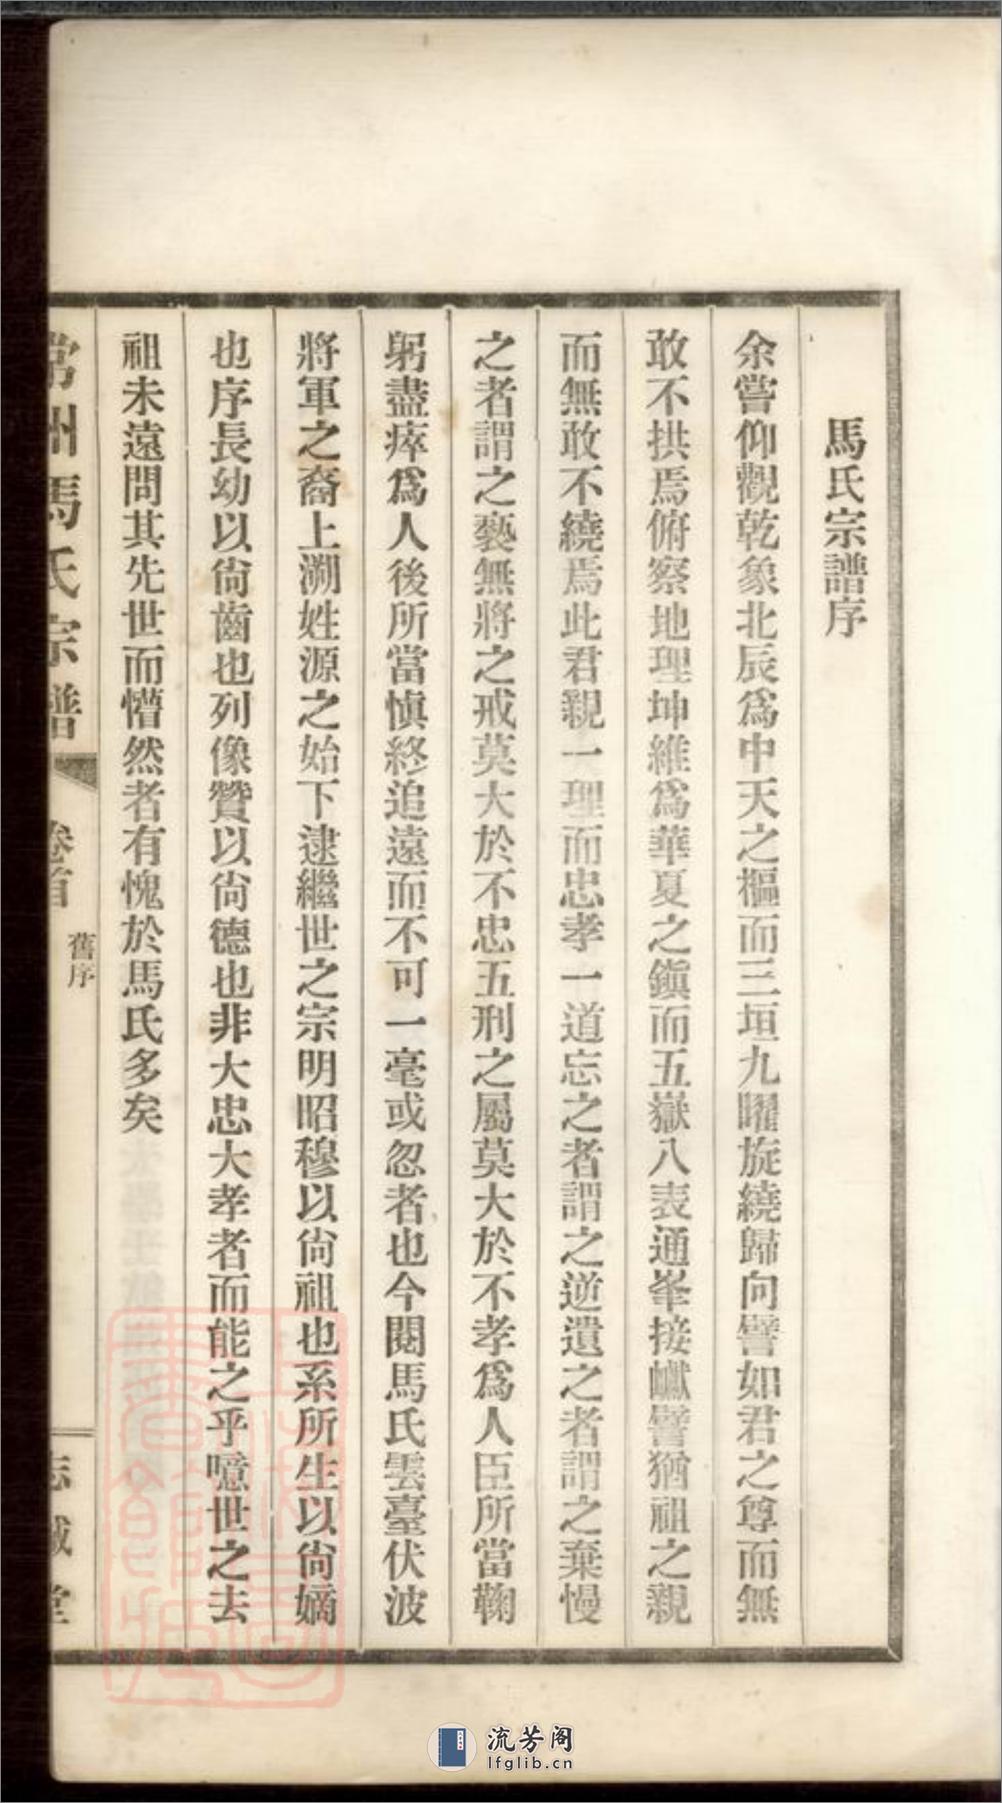 馬氏宗譜序
余嘗仰觀乾象北辰爲中天之樞而三垣九曜旋繞歸向譬如君之尊而無
敢不拱焉俯察地理坤維爲華夏之鎭而五嶽八表通峯接巘譬猶祖之親
而無敢不繞焉此君親一理而忠孝一道忘之者謂之逆遺之者謂之棄慢
之者謂之褻無將之戒莫大於不忠五刑之屬莫大於不孝爲人臣所當鞠
躬盡瘁爲人後所當愼終追遠而不可一毫或忽者也今閱馬氏雲臺伏波
將軍之裔上溯姓源之始下逮繼世之宗明昭穆以尙祖也系所生以尙嫡
也序長幼以尙齒也列像贊以尙德也非大忠大孝者而能之乎噫世之去
祖未遠問其先世而懵然者有愧於馬氏多矣
常州馬氏宗譜
卷首
舊序
志誠堂
流芳阁
lfglib.cn